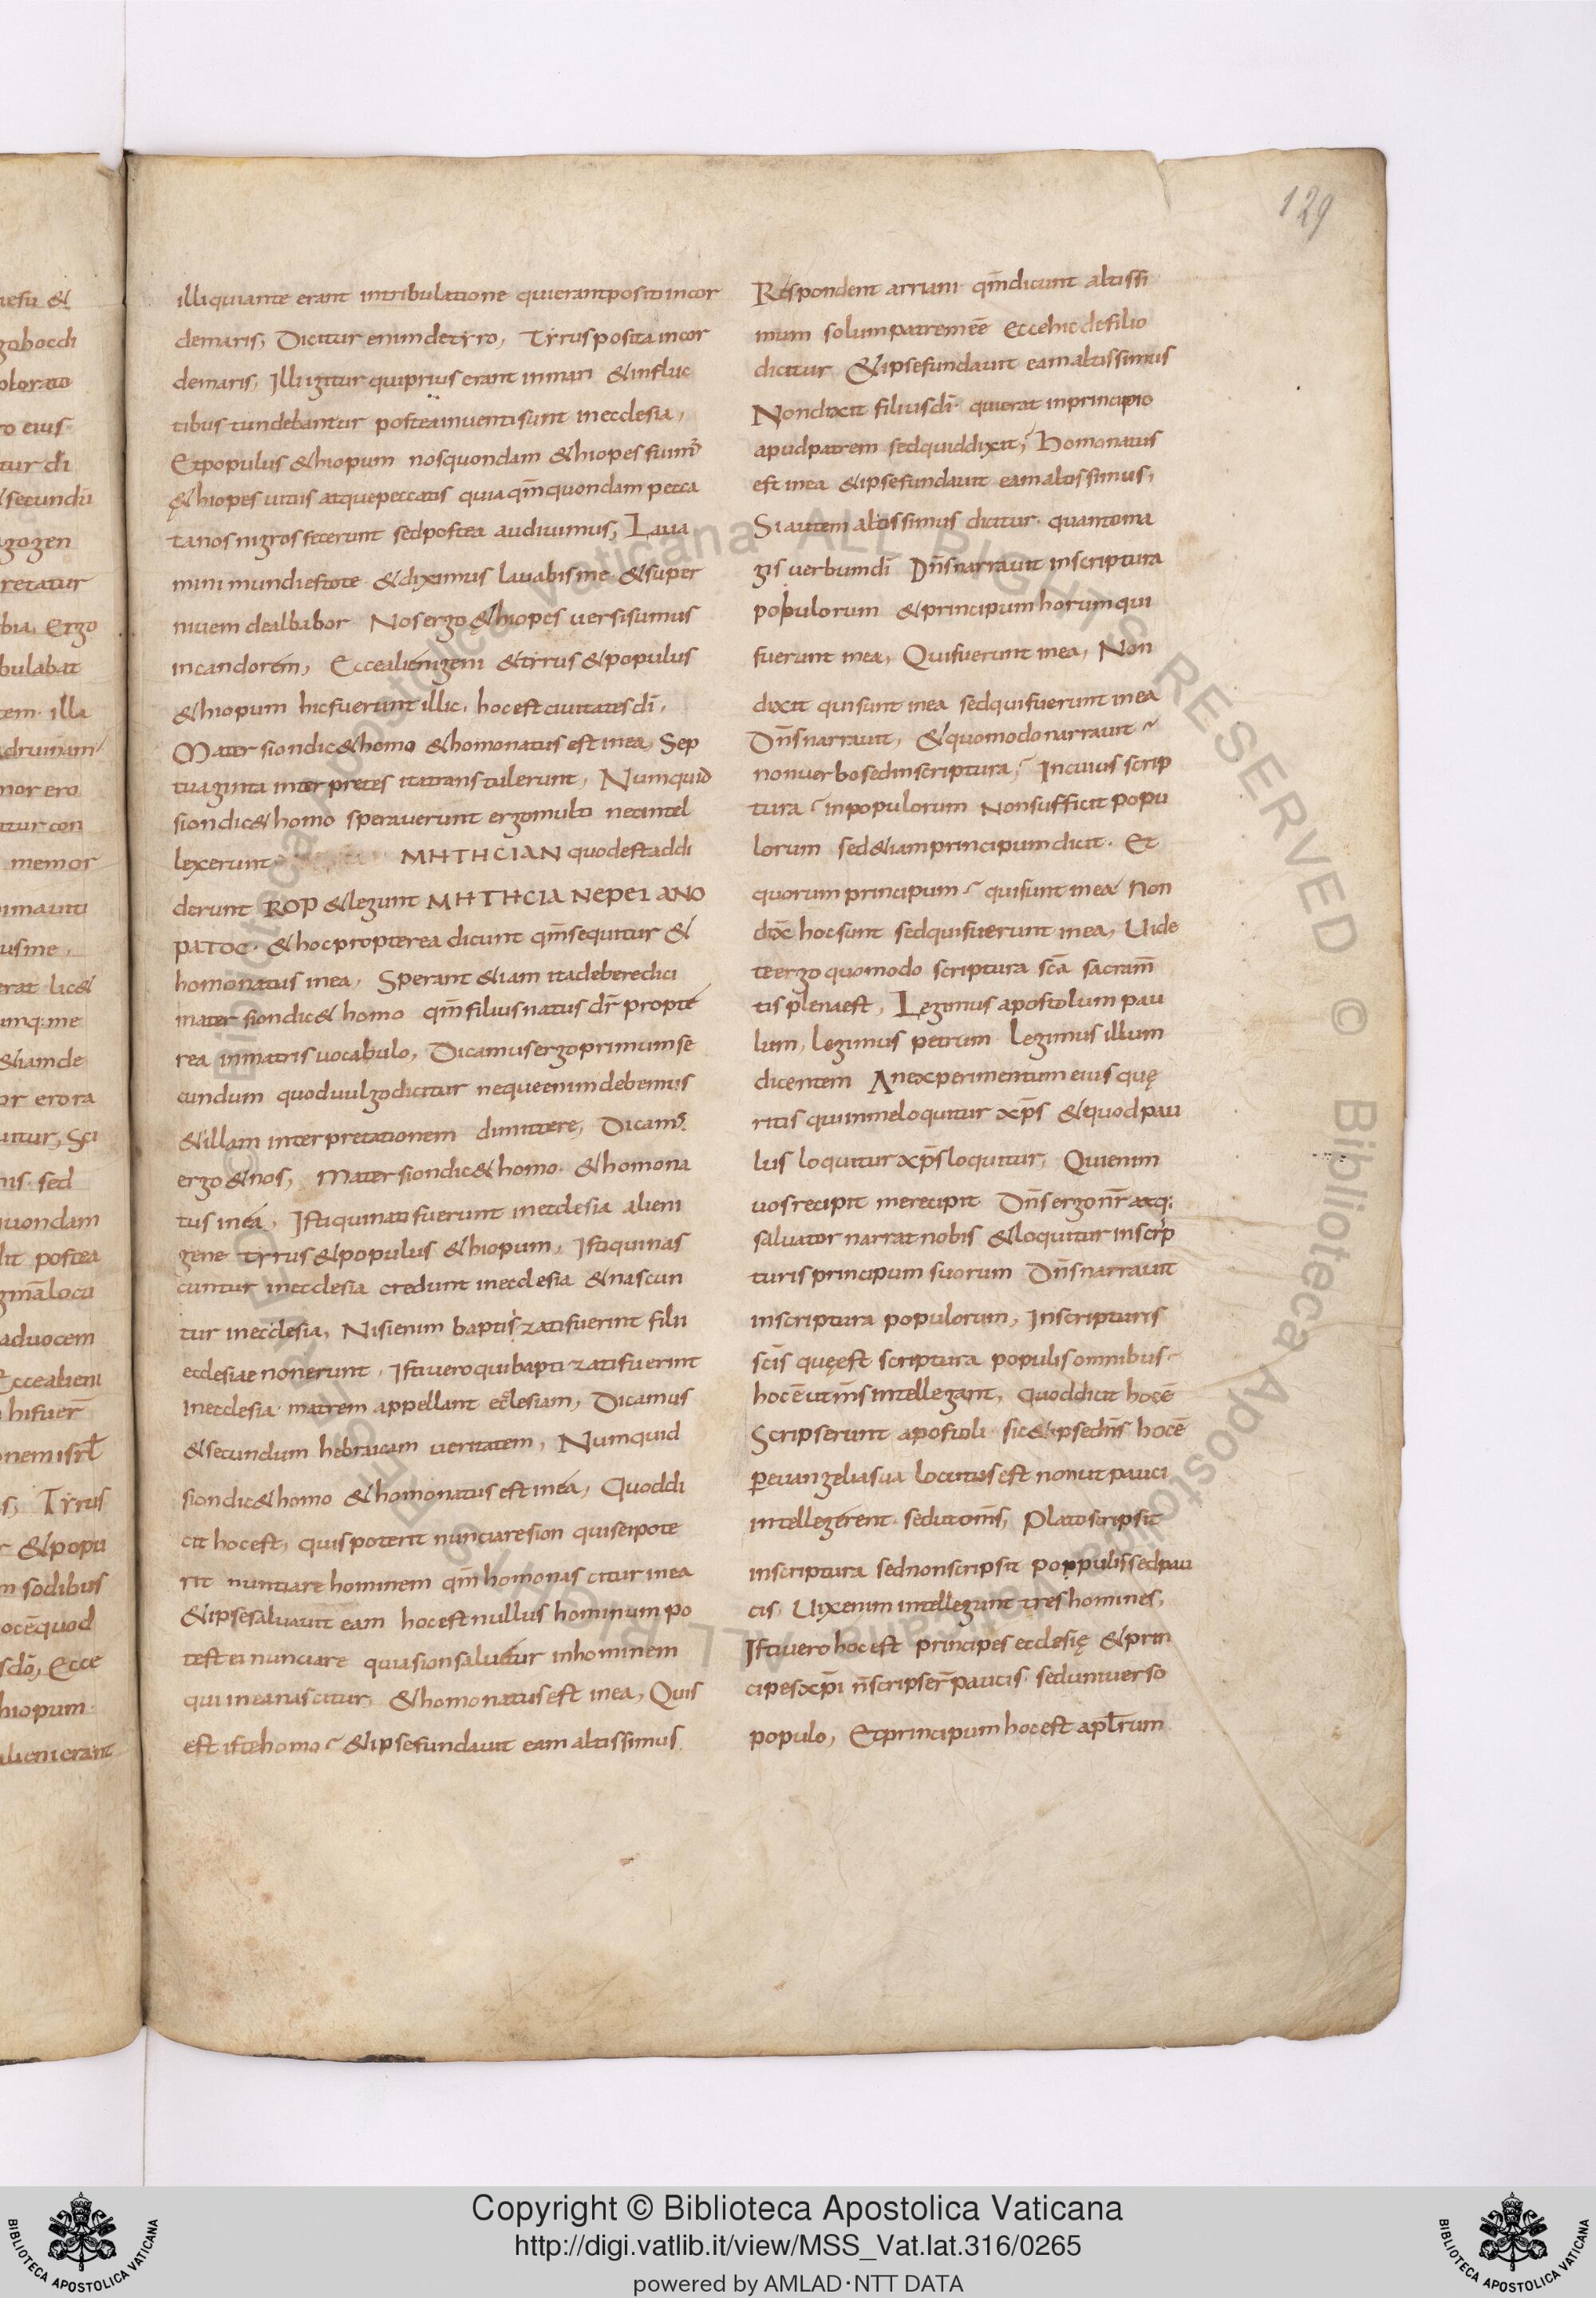 129
illi qui ante erant in tribulatione qui erant posito in cor
de maris, Dicitur enim de tyro, Tyrus posita in cor
de maris, Illi igitur qui prius erant in mari & in fluc
tibus tundebantur postea inventi sunt in ecclesia,
Et populus &hiopum nos quondam &hiopes fuim᷒
&hiopes vitiis atque peccatis quia qm̄ quondam pecca
ta nos nigros fecerunt sed postea audivimus, Lava
mini mundi estote & diximus lavabis me & super
nivem dealbabor Nos ergo &hiopes versi sumus
in candorem, Ecce alienigeni & tyrus & populus
&hiopum hic fuerunt illic, hoc est civitates dī,
Mater sion dic& homo & homo natus est in ea, Sep
tuaginta interpretes ita transtulerunt, Numquid
sion dic& homo speraverunt ergo multi nec intel
lexerunt MHTHCIAN quod est addi
derunt ROP & legunt MHTHCIA NEPEI ANO
PATOC. & hoc propterea dicunt qm̄ sequitur &
homo natus in ea, Sperant &iam ita debere dici
mater sion dic& homo qm̄ filius natus dr̄ propte
rea in matris vocabulo, Dicamus ergo primum se
cundum quod vulgo dicitur neque enim debemus
& illam interpretationem dimittere, Dicam᷒
ergo & nos, Mater sion dic& homo. & homo na
tus in ea, Isti qui nati fuerunt in ecclesia alieni
gene tyrus & populus &hiopum, Isti qui nas
cuntur in ecclesia credunt in ecclesia & nascun
tur in ecclesia, Nisi enim baptizati fuerint filii
ecclesiae non erunt, Isti vero qui baptizati fuerint
in ecclesia matrem appellant eclesiam, Dicamus
& secundum hebraicam veritatem, Numquid
sion dic& homo & homo natus est in ea, Quod di
cit hoc est, quis poterit nunciare sion quis ei pote
rit nuntiare hominem qm̄ homo nascitur in ea
& ipse salvavit eam hoc est nullus hominum po
test ei nunciare quia sion salvetur in hominem
qui in ea nascitur, & homo natus est in ea, Quis
est iste homo & ipse fundavit eam altissimus.
Respondent arriani qm̄ dicunt altissi
mum solum patrem eē Ecce hic de filio
dicitur & ipse fundavit eam altissimus
Non dixit filius dī. qui erat in principio
apud patrem sed quid dixit, Homo natus
est in ea & ipse fundavit eam altissimus,
Si autem altissimus dicitur. quanto ma
gis verbum dī Dn̄s narravit in scriptura
populorum & principum horum qui
fuerunt in ea, Qui fuerunt in ea, Non
dixit qui sunt in ea sed qui fuerunt in ea
Dn̄s narravit, & quomodo narravit
non verbo sed in scriptura, In cuius scrip
tura in populorum Non sufficit popu
lorum sed &iam principum dicit. Et
quorum principum qui sunt in ea Non
dix̄ hoc sunt sed qui fuerunt in ea, Vide
te ergo quomodo scriptura scā sacram̄
tis plena est, Legimus apostolum pau
lum, legimus petrum legimus illum
dicentem An experimentum eius quę
ritis qui in me loquitur xp̄s & quod pau
lus loquitur xp̄s loquitur, Qui enim
vos recipit me recipit Dn̄s ergo nr̄ atq;
salvator narrat nobis & loquitur in scrip
turis principum suorum Dn̄s narravit
in scriptura populorum, In scripturis
scīs quę est scriptura populis omnibus
hoc ē ut om̄s intellegant, Quod dicit hoc ē
Scripserunt apostoli sic & ipse dn̄s hoc ē
p evangelia sua locutus est non ut pauci
intellegerent. sed ut om̄s, Plato scripsit
in scriptura sed non scripsit poppulis sed pau
cis, Vix enim intellegunt tres homines,
Isti vero hoc est principes ecclesię & prin
cipes xp̄i n̄ scripser̄ paucis. sed universo
populo, Et principum hoc est apl̄orum
Copyright © Biblioteca Apostolica Vaticana
http://digi.vatlib.it/view/MSS_Vat.lat.316/0265
powered by AMLAD·NTT DATA